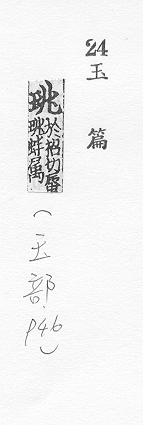 24
玉篇
珧
於招切蜃
珧蚌属
(玉部.P46)